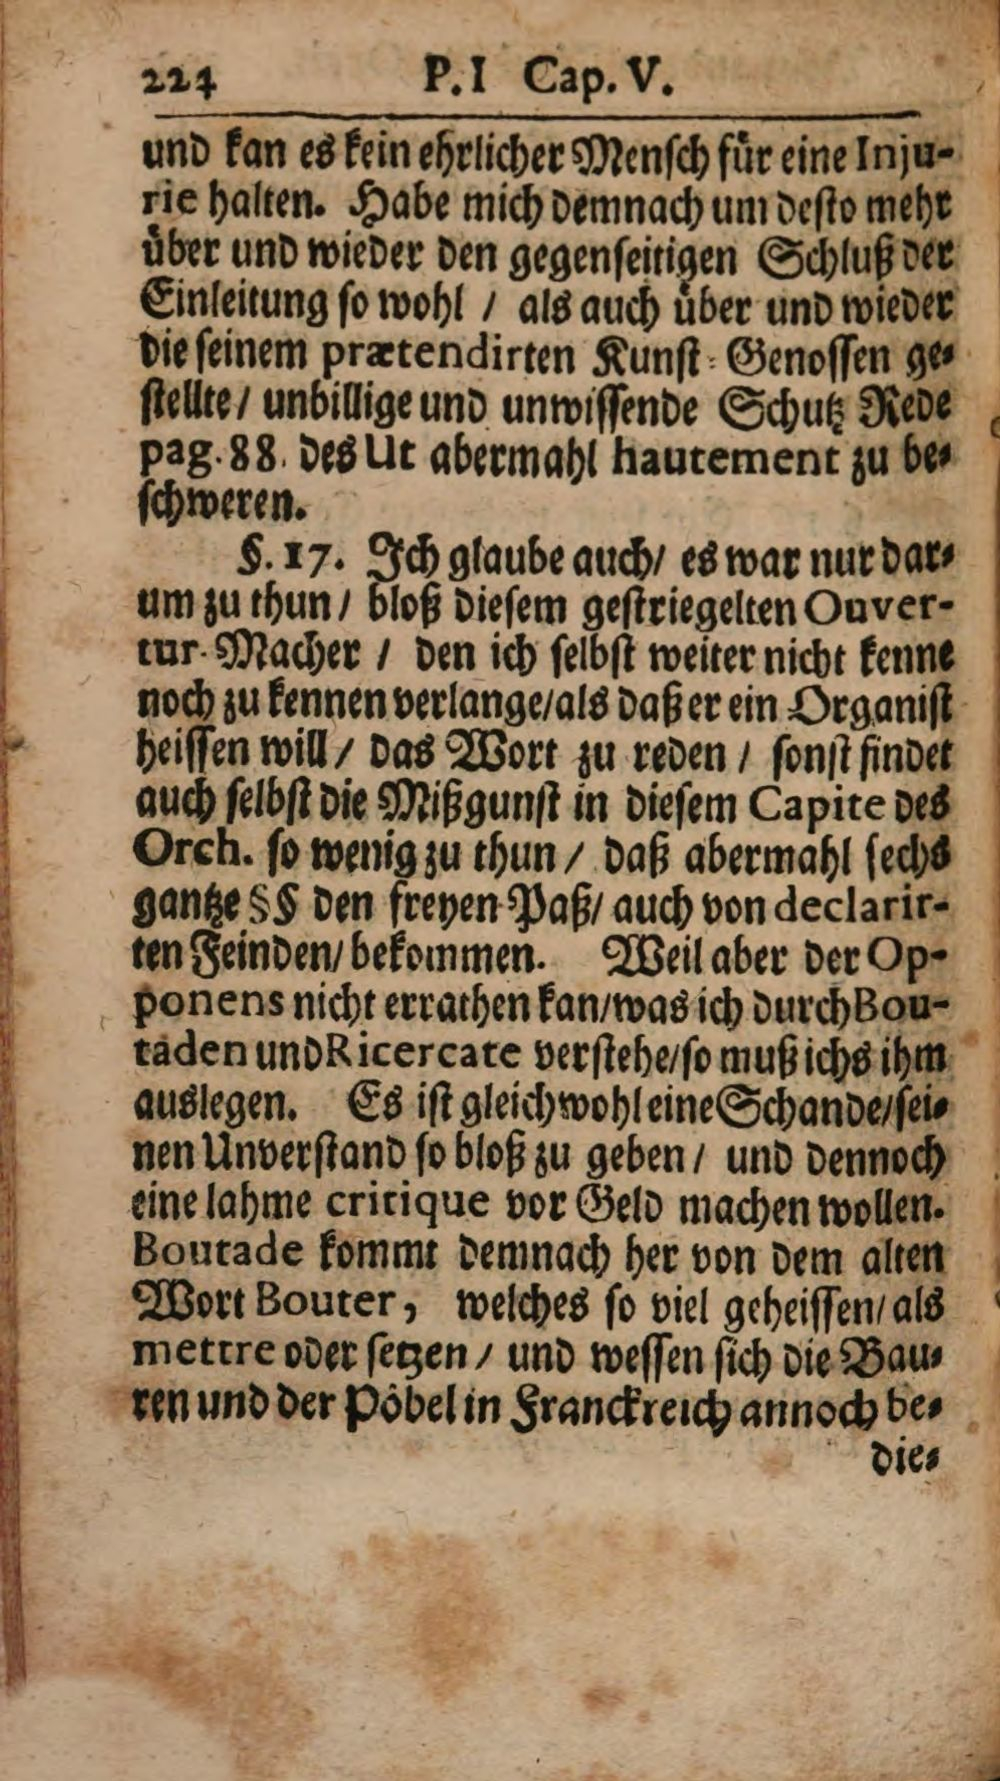 224 P. I Cap. V.
und kan es kein ehrlicher Mensch für eine Inju-
rie halten. Habe mich demnach um desto mehr
über und wieder den gegenseitigen Schluß der
Einleitung so wohl / als auch über und wieder
die seinem prætendirten Kunst-Genossen ge-
stellte / unbillige und unwissende Schutz Rede
pag. 88. des Ut abermahl hautement zu be-
schweren.
§. 17. Ich glaube auch / es war nur dar-
um zu thun / bloß diesem gestriegelten Ouver-
tur-Macher / den ich selbst weiter nicht kenne
noch zu kennen verlange / als daß er ein Organist
heissen will / das Wort zu reden / sonst findet
auch selbst die Mißgunst in diesem Capite des
Orch. so wenig zu thun / daß abermahl sechs
gantze §§ den freyen Paß / auch von declarir-
ten Feinden / bekommen. Weil aber der Op-
ponens nicht errathen kan / was ich durch Bou-
taden und Ricercate verstehe / so muß ichs ihm
auslegen. Es ist gleichwohl eine Schande / sei-
nen Unverstand so bloß zu geben / und dennoch
eine lahme critique vor Geld machen wollen.
Boutade kommt demnach her von dem alten
Wort Bouter, welches so viel geheissen / als
mettre oder setzen / und wessen sich die Bau-
ren und der Pöbel in Franckreich annoch be-
die-